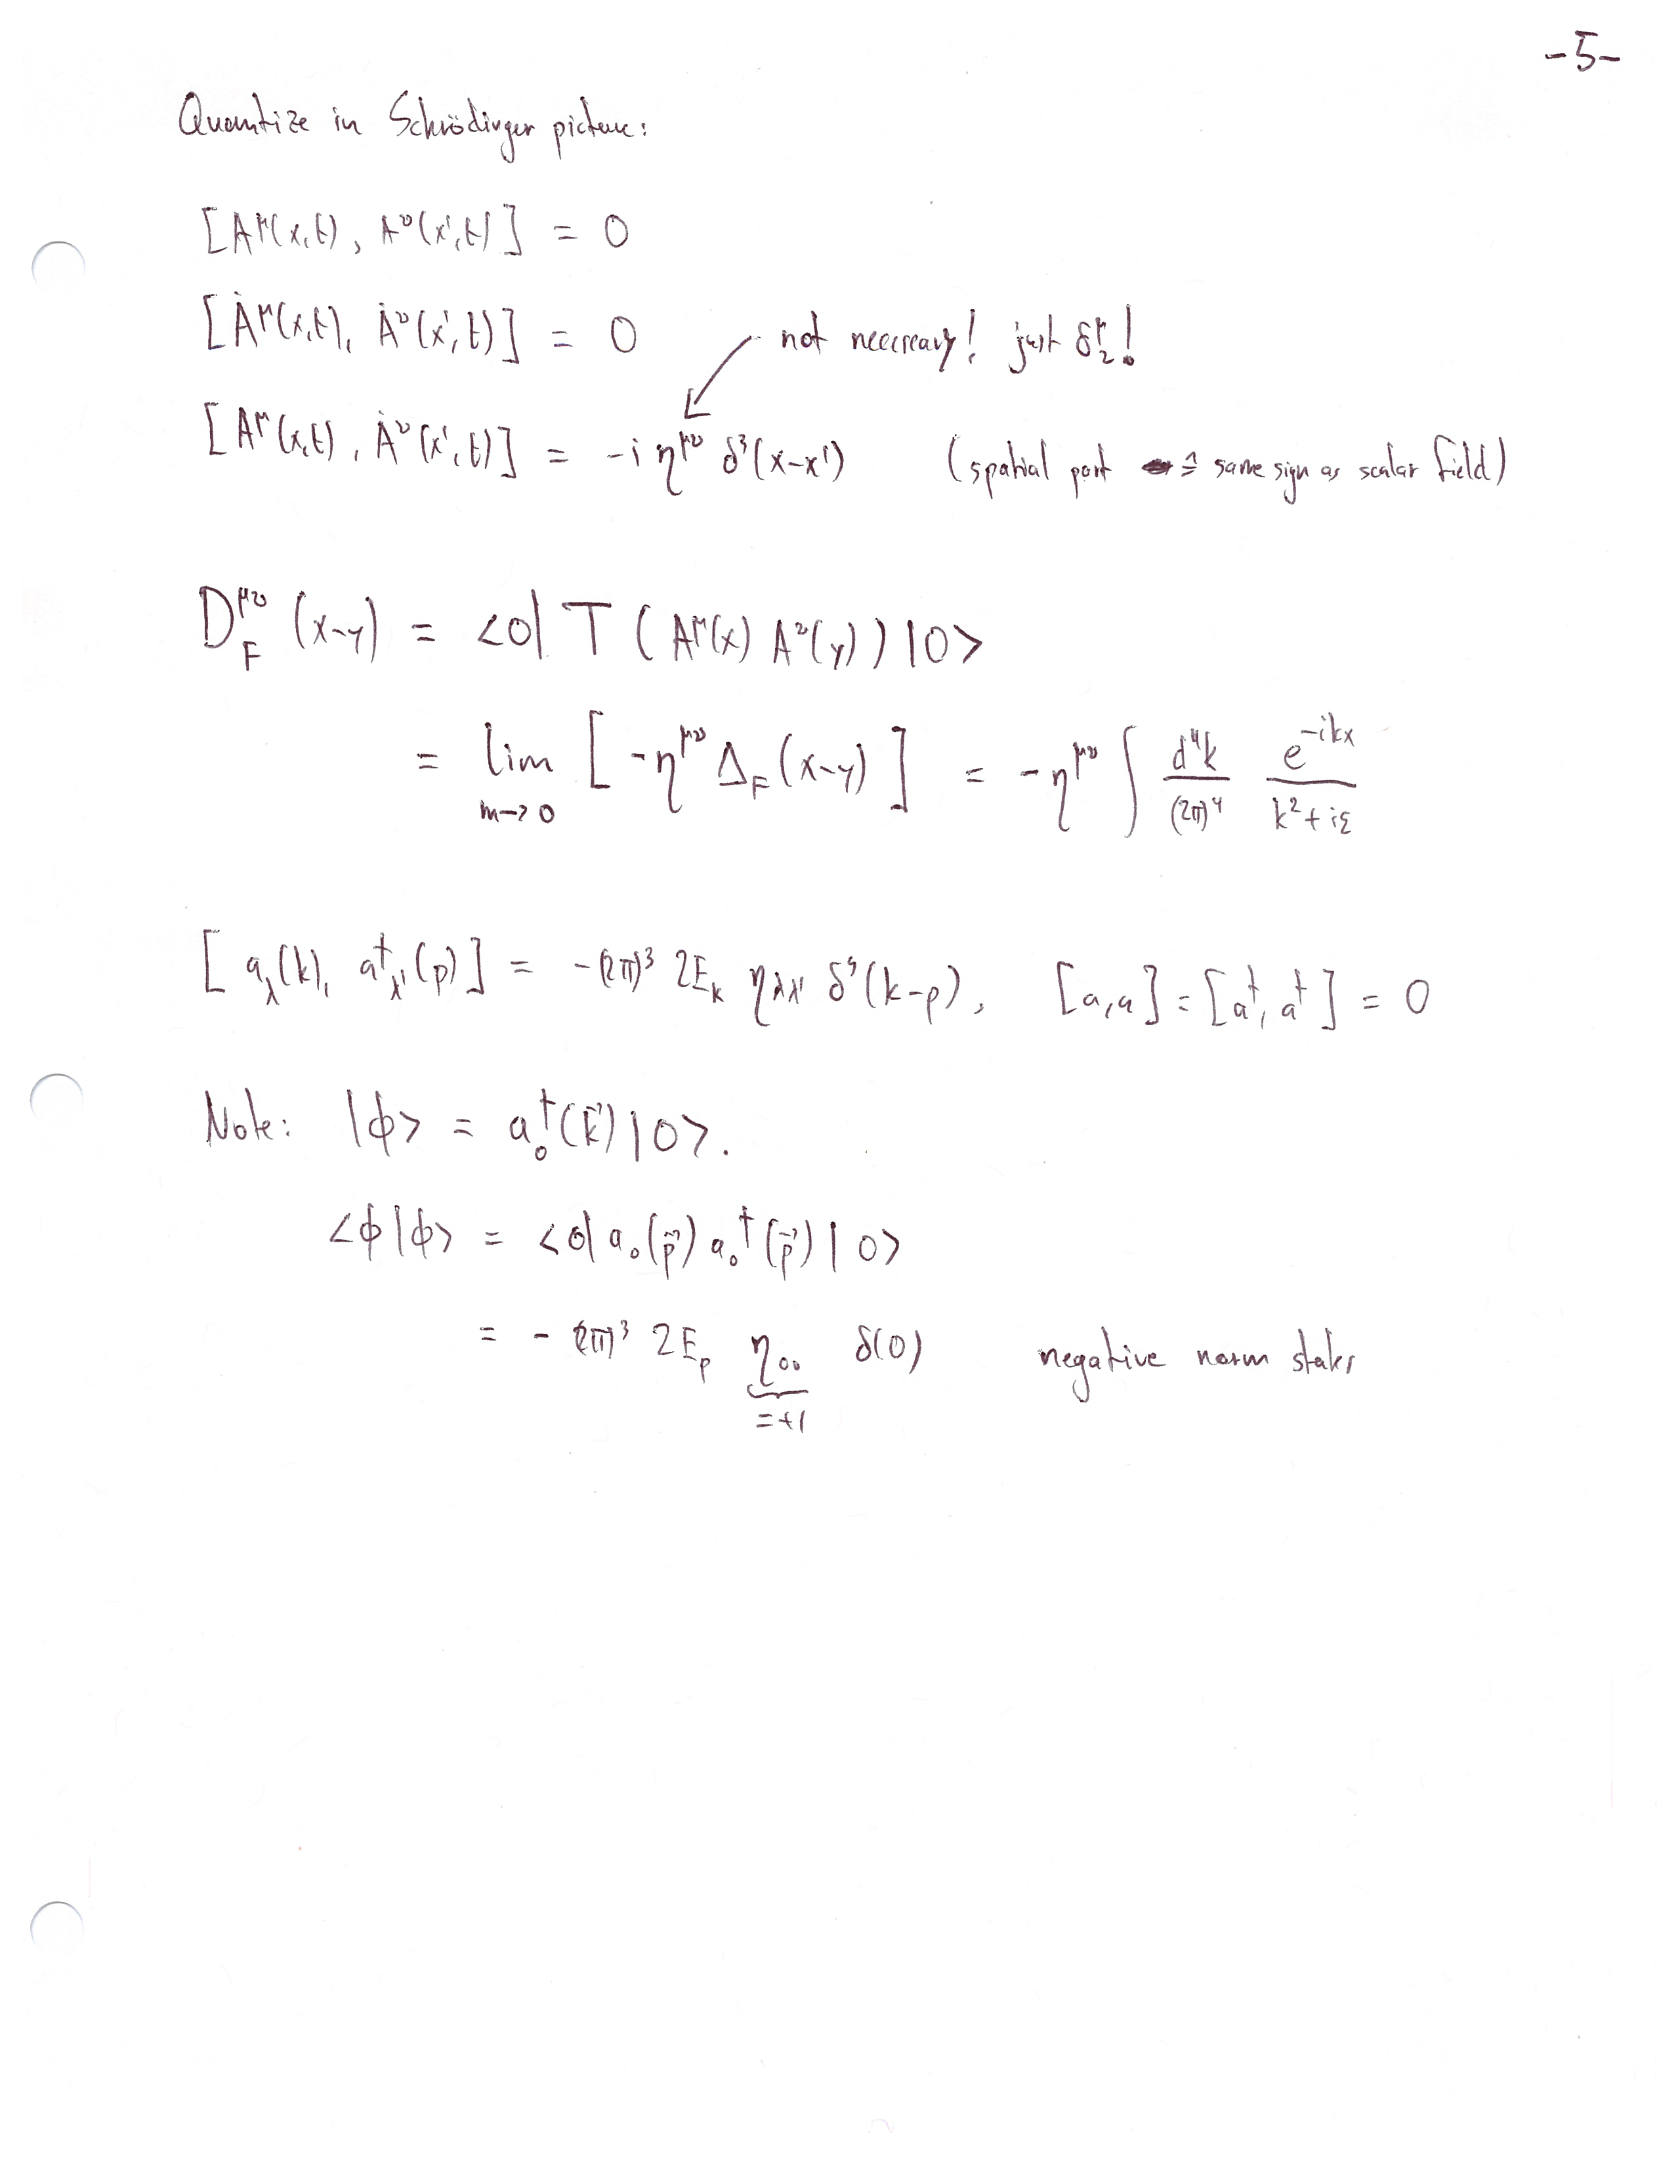 -5-
Quantize in Schrödinger picture:
[A^μ(x,t), A^ν(x',t)] = 0
[Ȧ^μ(x,t), Ȧ^ν(x',t)] = 0
not necessary! just δ^μ_ν!
[A^μ(x,t), Ȧ^ν(x',t)] = -i η^{μν} δ³(x-x') (spatial part ≙ same sign as scalar field)
D_F^{μν}(x-y) = <0| T (A^μ(x) A^ν(y)) |0>
= lim_{m→0} [-η^{μν} Δ_F(x-y)] = -η^{μν} ∫ d⁴k/(2π)⁴ e^{-ikx}/(k²+iε)
[a_λ(k), a†_λ'(p)] = -(2π)³ 2E_k η_{λλ'} δ³(k-p), [a,a] = [a†,a†] = 0
Note: |ϕ> = a₀†(k⃗)|0>.
<ϕ|ϕ> = <0| a₀(p⃗) a₀†(p⃗) |0>
= -(2π)³ 2E_p η₀₀ δ(0) negative norm states
= +1